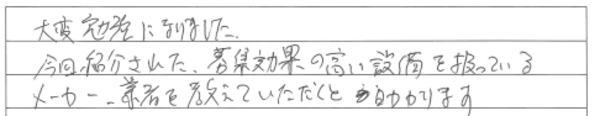 大変勉強になりました.
今回紹介された、募集効果の高い設備を扱っている
メーカー、業者を教えていただくと助かります